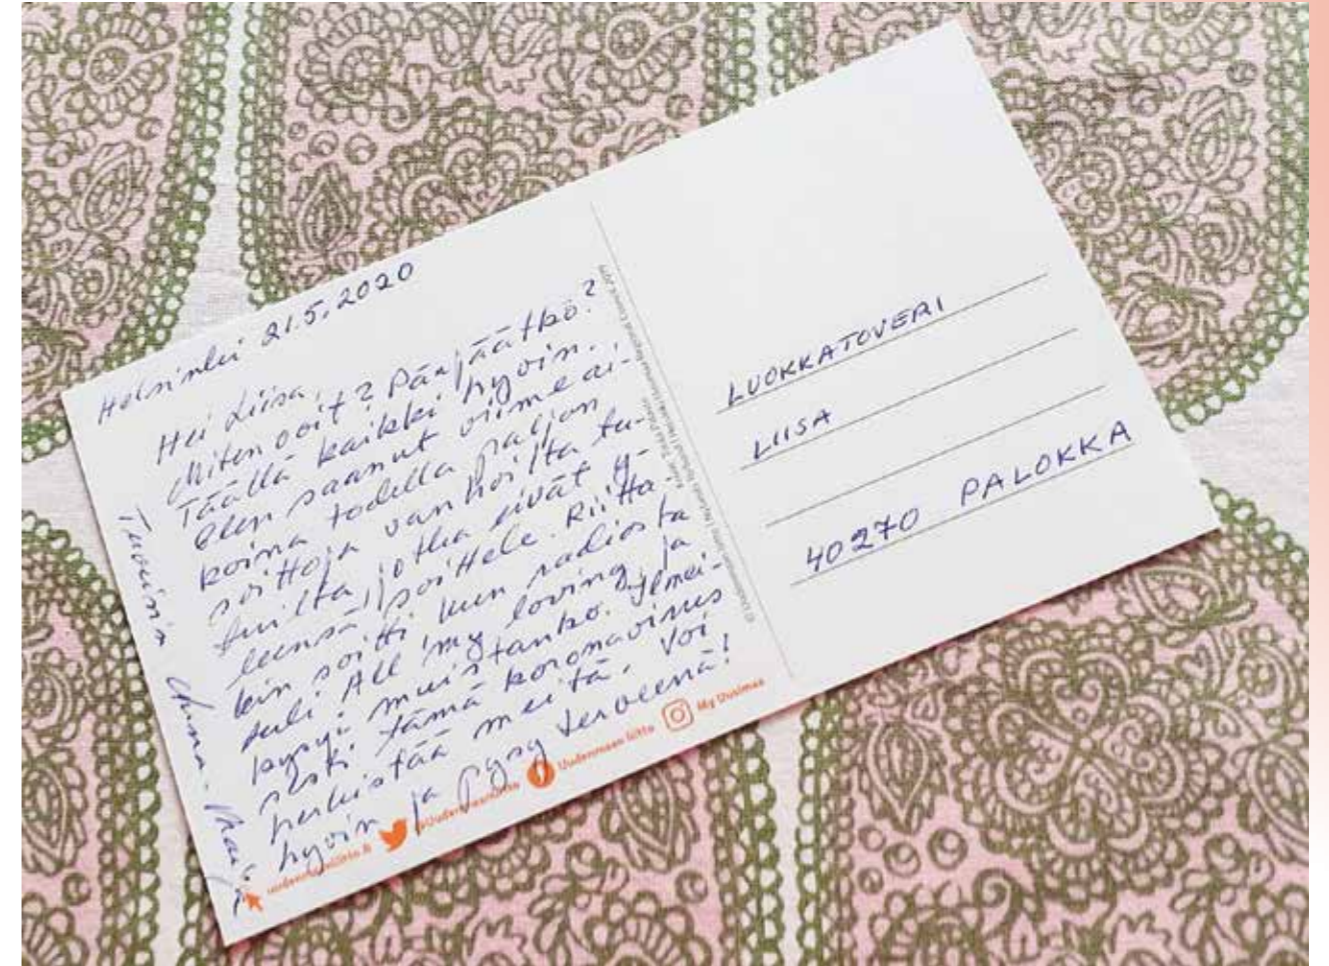 Helsinki 21.5.2020
Hei Liisa,
Miten voit? Pärjäätkö?
Täällä kaikki hyvin.
Olen saanut viime ai-
koina todella paljon
soittoja vanhoilta tu-
tuilta, jotka eivät y-
leensä soittele. Riitta-
kin soitti kun radiosta
tuli All my loving, ja
kysyi muistanko. Ilmei-
sesti tämä koronavirus
herkistää meitä. Voi
hyvin ja pysy terveenä!
Tuovin Anna-Maija
uudenmaanliitto.fi
@Uudenmaanliitto
Uudenmaan liitto
My Uusimaa
LUOKKATOVERI
LIISA
40270 PALOKKA